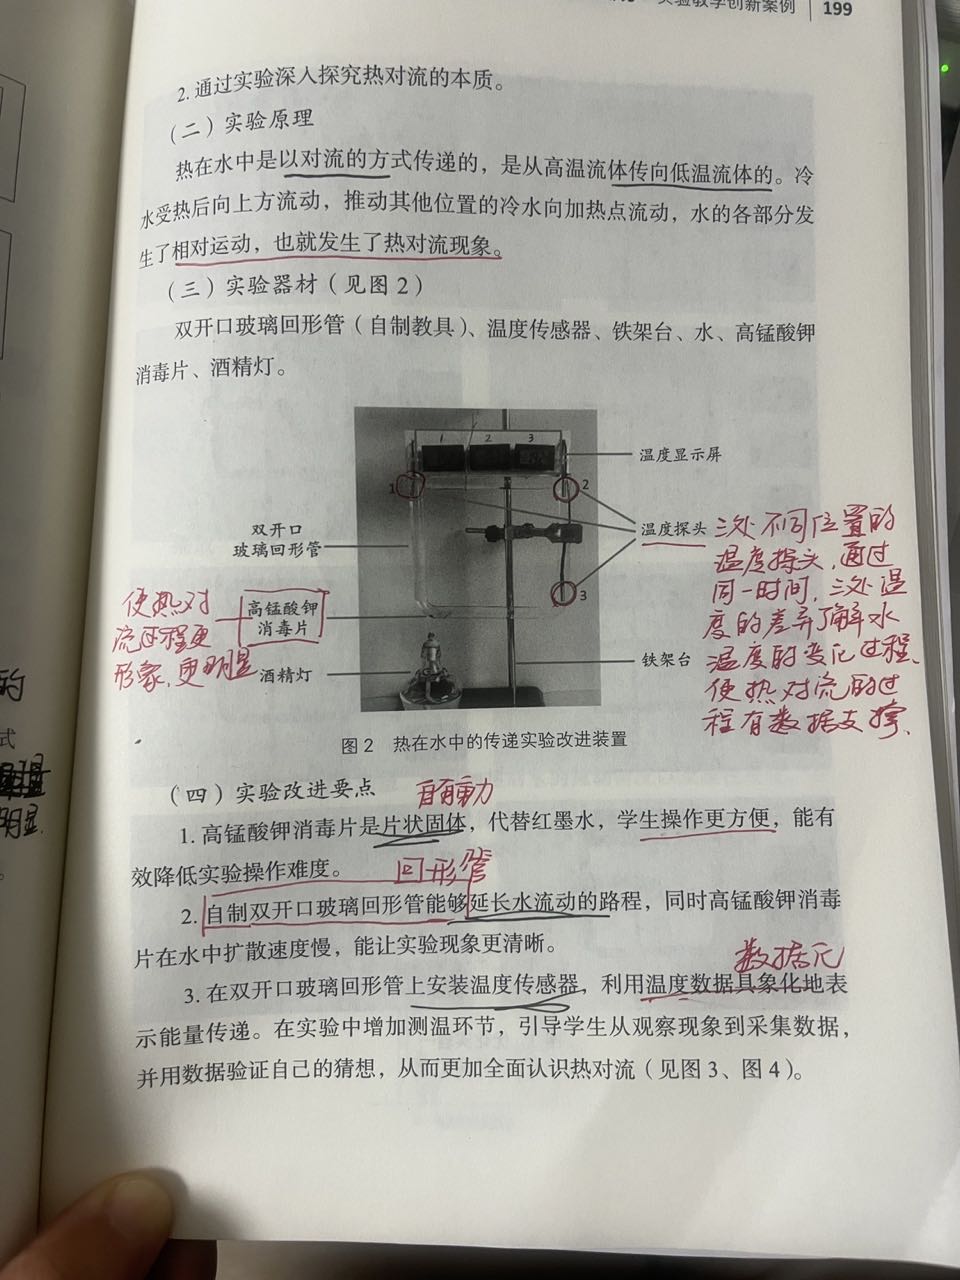 实验教学创新案例 199
2. 通过实验深入探究热对流的本质。
（二）实验原理
热在水中是以对流的方式传递的，是从高温流体传向低温流体的。冷
水受热后向上方流动，推动其他位置的冷水向加热点流动，水的各部分发
生了相对运动，也就发生了热对流现象。
（三）实验器材（见图2）
双开口玻璃回形管（自制教具）、温度传感器、铁架台、水、高锰酸钾
消毒片、酒精灯。
1 2 3
温度显示屏
1
2
温度探头
双开口
玻璃回形管
3
三处不同位置的
温度探头，通过
同一时间，三处温
度的差异了解水
温度的变化过程、
使热对流的过
程有数据支撑、
使热对
流过程更
形象、更明显
高锰酸钾
消毒片
酒精灯
铁架台
的
式
明显
图2 热在水中的传递实验改进装置
（四）实验改进要点
1. 高锰酸钾消毒片是片状固体，代替红墨水，学生操作更方便，能有
效降低实验操作难度。
回形管
2. 自制双开口玻璃回形管能够延长水流动的路程，同时高锰酸钾消毒
片在水中扩散速度慢，能让实验现象更清晰。
数据化
3. 在双开口玻璃回形管上安装温度传感器，利用温度数据具象化地表
示能量传递。在实验中增加测温环节，引导学生从观察现象到采集数据，
并用数据验证自己的猜想，从而更加全面认识热对流（见图3、图4）。